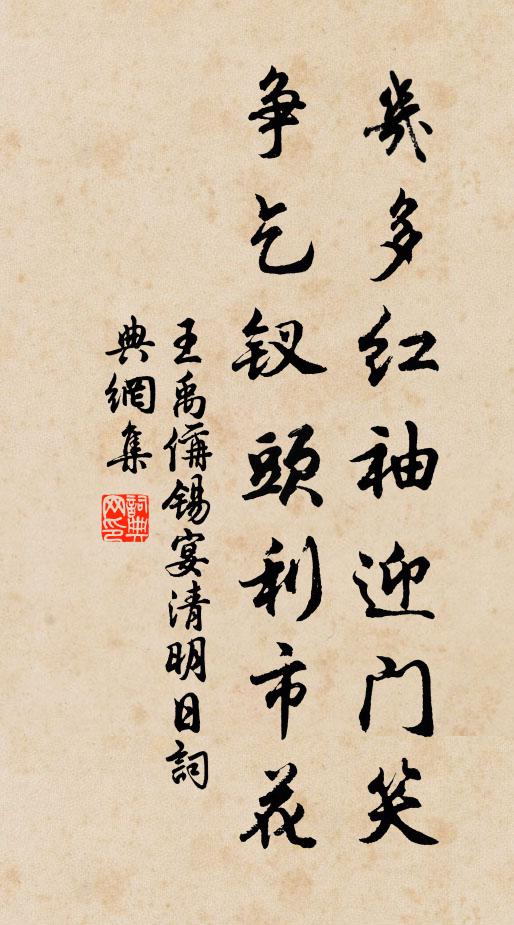 幾多红袖迎门笑
争乞钗頭利市花
王禹偁锡宴清明日詞
典網集
詞典網印